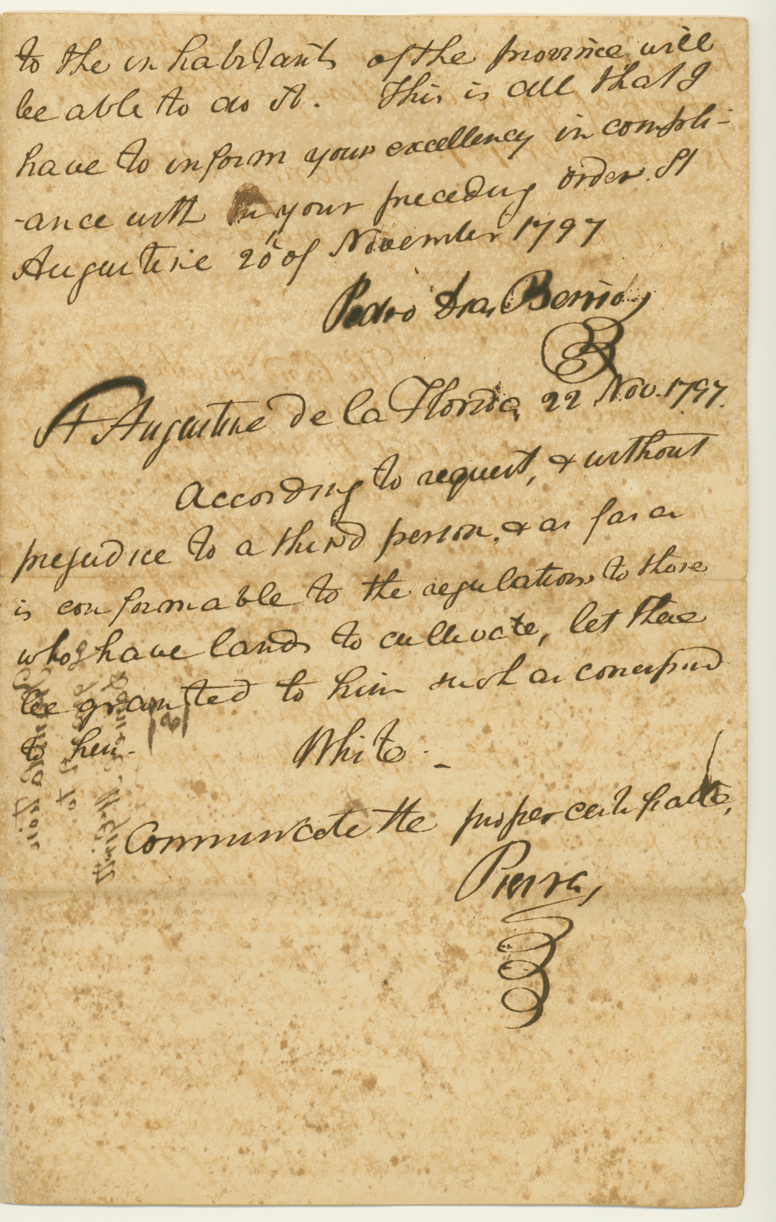 to the inhabitants of the province will
be able to do it. This is all that I
have to inform your excellency in compli-
-ance with your preceding order. St
Augustine 20th of November 1797
Pedro Dias Berrio,
St Augustine de la Florida, 22 Nov. 1797.
According to request, & without
prejudice to a third person, & as far as
is conformable to the regulations to those
who have lands to cultivate, let there
be granted to him such as
to him.
White. -
Communicate the proper certificate,
Pierra,